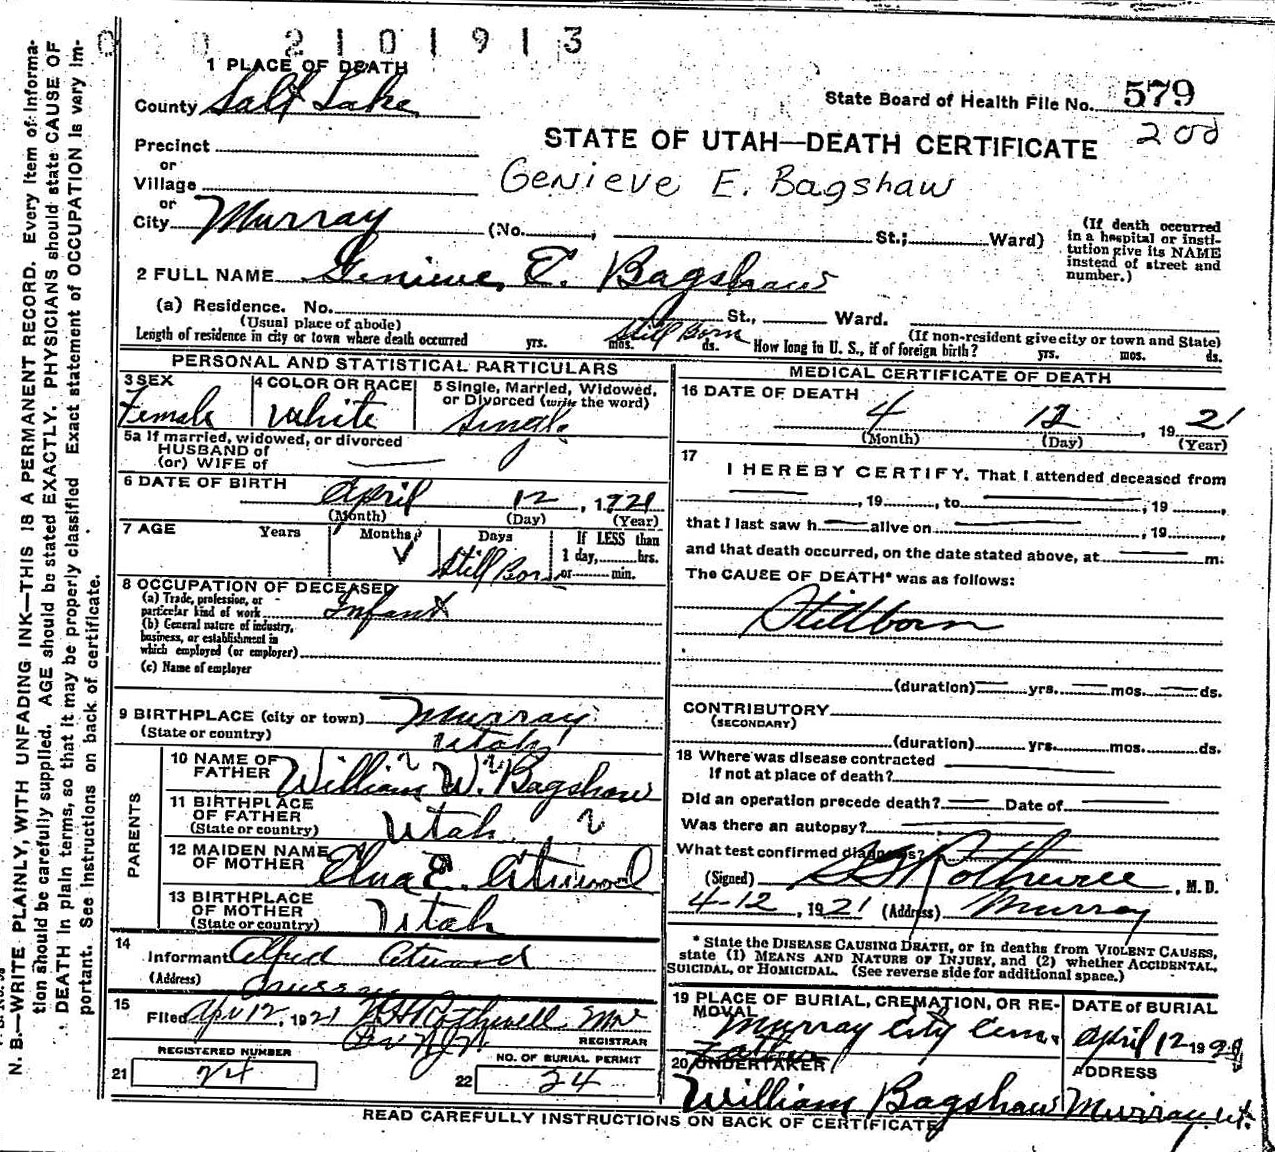 2101913
1 PLACE OF DEATH
County Salt Lake
State Board of Health File No. 579
200
STATE OF UTAH—DEATH CERTIFICATE
Precinct
or
Village
Genieve E. Bagshaw
or
City Murray (No. , St.; Ward)
(If death occurred in a hospital or insti-
tution give its NAME instead of street and number.)
2 FULL NAME Genieve, E. Bagshaw
(a) Residence. No. St., Ward.
(Usual place of abode) (If non-resident give city or town and State)
Length of residence in city or town where death occurred yrs. mos. ds. Still Born How long in U. S., if of foreign birth? yrs. mos. ds.
PERSONAL AND STATISTICAL PARTICULARS
3 SEX Female
4 COLOR OR RACE White
5 Single, Married, Widowed, or Divorced (write the word) Single
5a If married, widowed, or divorced
HUSBAND of
(or) WIFE of —
6 DATE OF BIRTH April 12, 1921
(Month) (Day) (Year)
7 AGE Years Months Days If LESS than
1 day, hrs.
or min.
Still Born
8 OCCUPATION OF DECEASED
(a) Trade, profession, or
particular kind of work Infant
(b) General nature of industry,
business, or establishment in
which employed (or employer)
(c) Name of employer
9 BIRTHPLACE (city or town) Murray
(State or country) Utah
PARENTS
10 NAME OF FATHER William W. Bagshaw
11 BIRTHPLACE OF FATHER (State or country) Utah
12 MAIDEN NAME OF MOTHER Elna E. Atwood
13 BIRTHPLACE OF MOTHER (State or country) Utah
14
Informant Alfred Atwood
(Address) Murray
15
Filed Apr 12, 1921
REGISTRAR
REGISTERED NUMBER
21 24
NO. OF BURIAL PERMIT
22 24
MEDICAL CERTIFICATE OF DEATH
16 DATE OF DEATH
4 12, 1921
(Month) (Day) (Year)
17
I HEREBY CERTIFY, That I attended deceased from
—, 19 , to —, 19 ,
that I last saw h— alive on —, 19 ,
and that death occurred, on the date stated above, at — m.
The CAUSE OF DEATH* was as follows:
Stillborn
(duration) — yrs. — mos. — ds.
CONTRIBUTORY
(SECONDARY)
(duration) yrs. mos. ds.
18 Where was disease contracted
If not at place of death? —
Did an operation precede death? — Date of —
Was there an autopsy? —
What test confirmed diagnosis? —
(Signed) , M. D.
4-12, 1921 (Address) Murray
* State the DISEASE CAUSING DEATH, or in deaths from VIOLENT CAUSES,
state (1) MEANS AND NATURE OF INJURY, and (2) whether ACCIDENTAL,
SUICIDAL, or HOMICIDAL. (See reverse side for additional space.)
19 PLACE OF BURIAL, CREMATION, OR RE-
MOVAL Murray City Cem.
DATE OF BURIAL
April 12 1921
Father
20 UNDERTAKER
William Bagshaw
ADDRESS
Murray, Ut.
READ CAREFULLY INSTRUCTIONS ON BACK OF CERTIFICATE
N. B.—WRITE PLAINLY, WITH UNFADING INK—THIS IS A PERMANENT RECORD. Every item of informa-
tion should be carefully supplied. AGE should be stated EXACTLY. PHYSICIANS should state CAUSE OF
DEATH in plain terms, so that it may be properly classified. Exact statement of OCCUPATION is very im-
portant. See instructions on back of certificate.